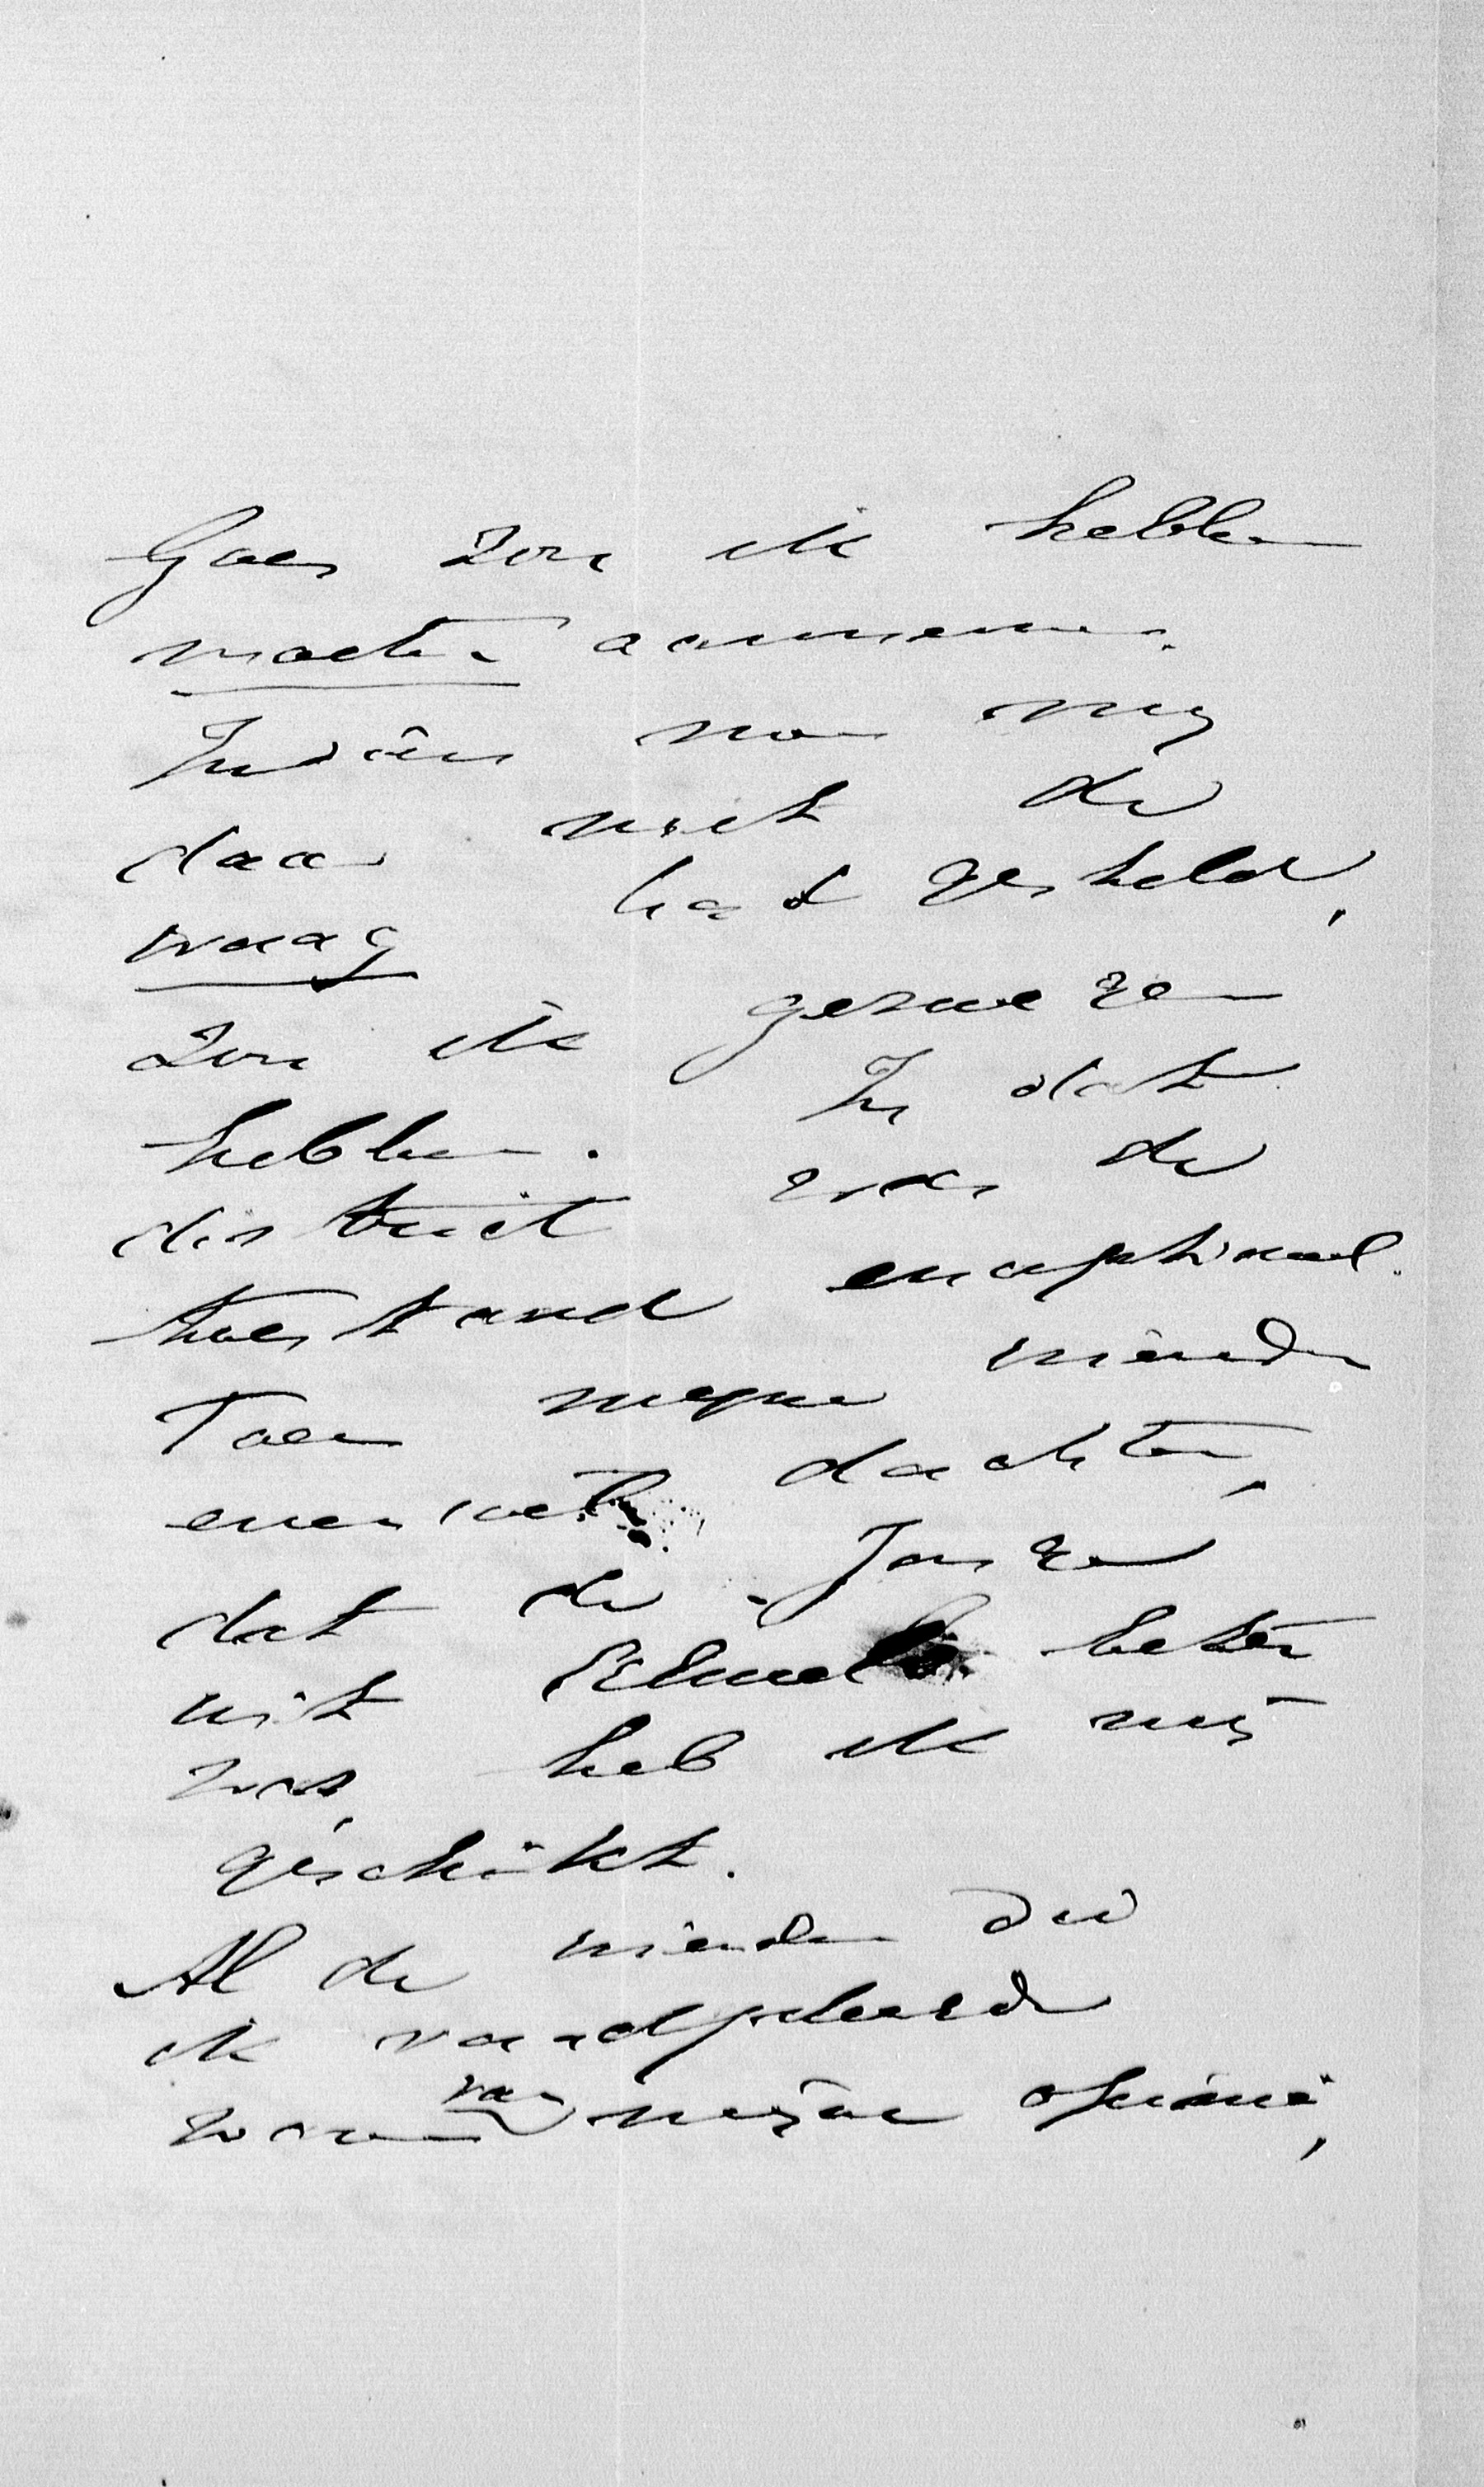 Goes zou ik hebben
moeten aannemen.
Indien men mij
daar niet de
vraag had gesteld,
zou ik gezwegen
hebben. In dat
district was de
toestand exceptioneel.
Toen mijne vrienden
evenwel dachten,
dat de Jonge
uit beter
was, heb ik mij
geschikt.
Al de vrienden die
ik raadpleegde
waren van mijne opinie,